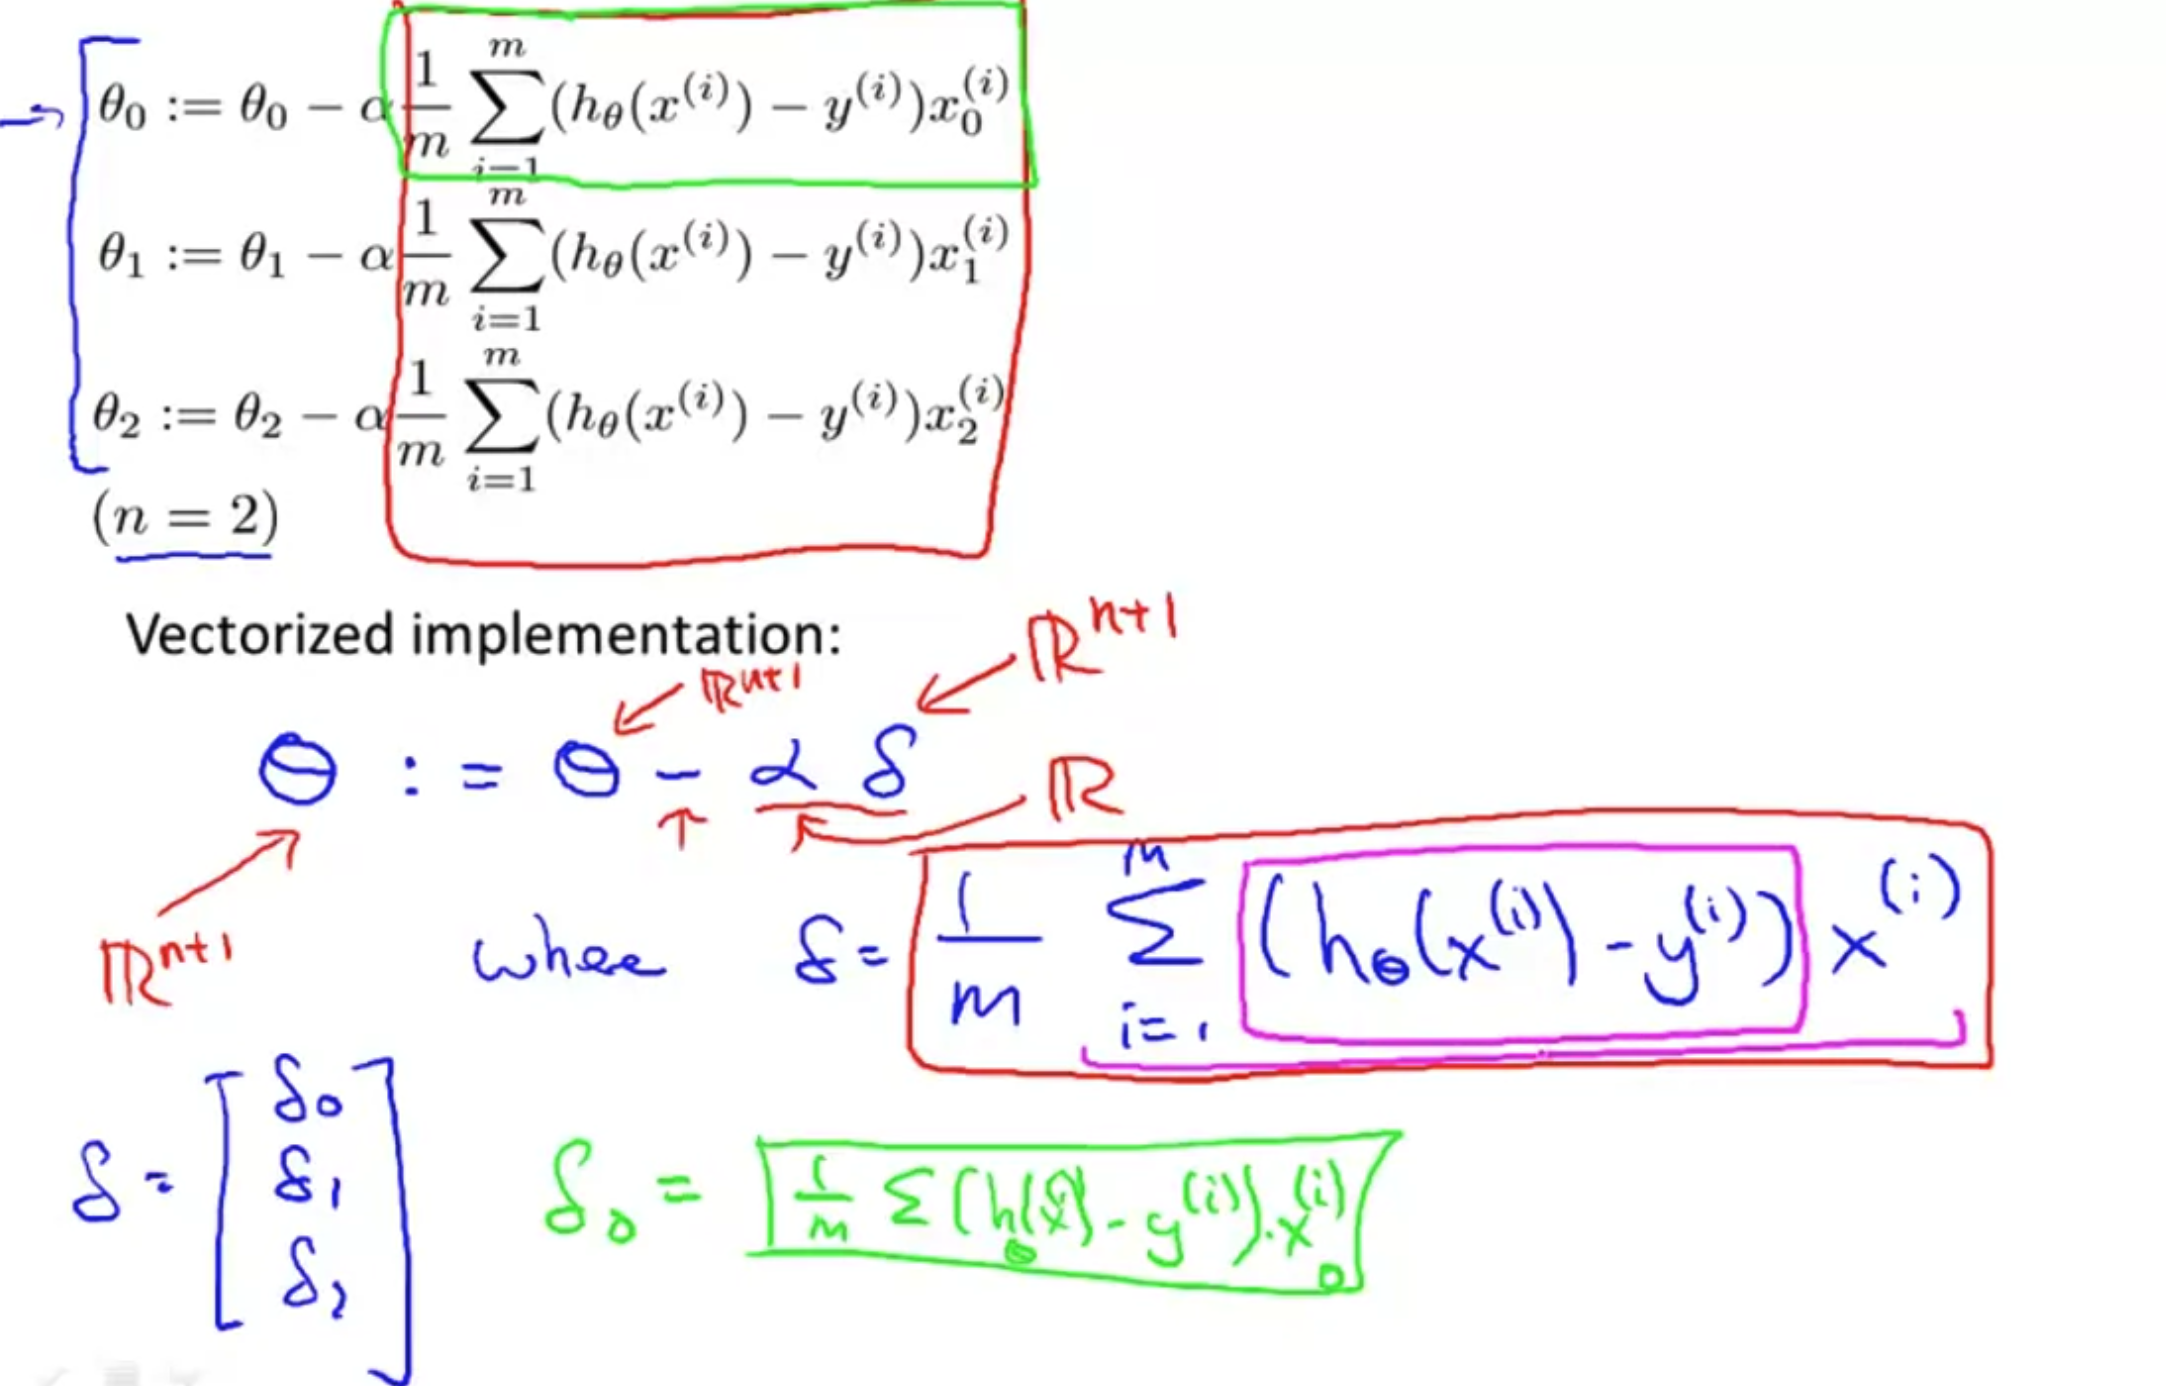 θ₀ := θ₀ − α 1/m ∑_{i=1}^{m} (h_θ(x^{(i)}) − y^{(i)})x₀^{(i)}
θ₁ := θ₁ − α 1/m ∑_{i=1}^{m} (h_θ(x^{(i)}) − y^{(i)})x₁^{(i)}
θ₂ := θ₂ − α 1/m ∑_{i=1}^{m} (h_θ(x^{(i)}) − y^{(i)})x₂^{(i)}
(n = 2)
Vectorized implementation:
ℝ^{n+1}
ℝ^{n+1}
θ := θ − α δ
ℝ
ℝ^{n+1}
where δ = 1/m ∑_{i=1}^{m} (h_θ(x^{(i)}) − y^{(i)}) x^{(i)}
δ = [δ₀ δ₁ δ₂]
δ₀ = 1/m ∑ (h_θ(x^{(i)}) − y^{(i)}) · x₀^{(i)}